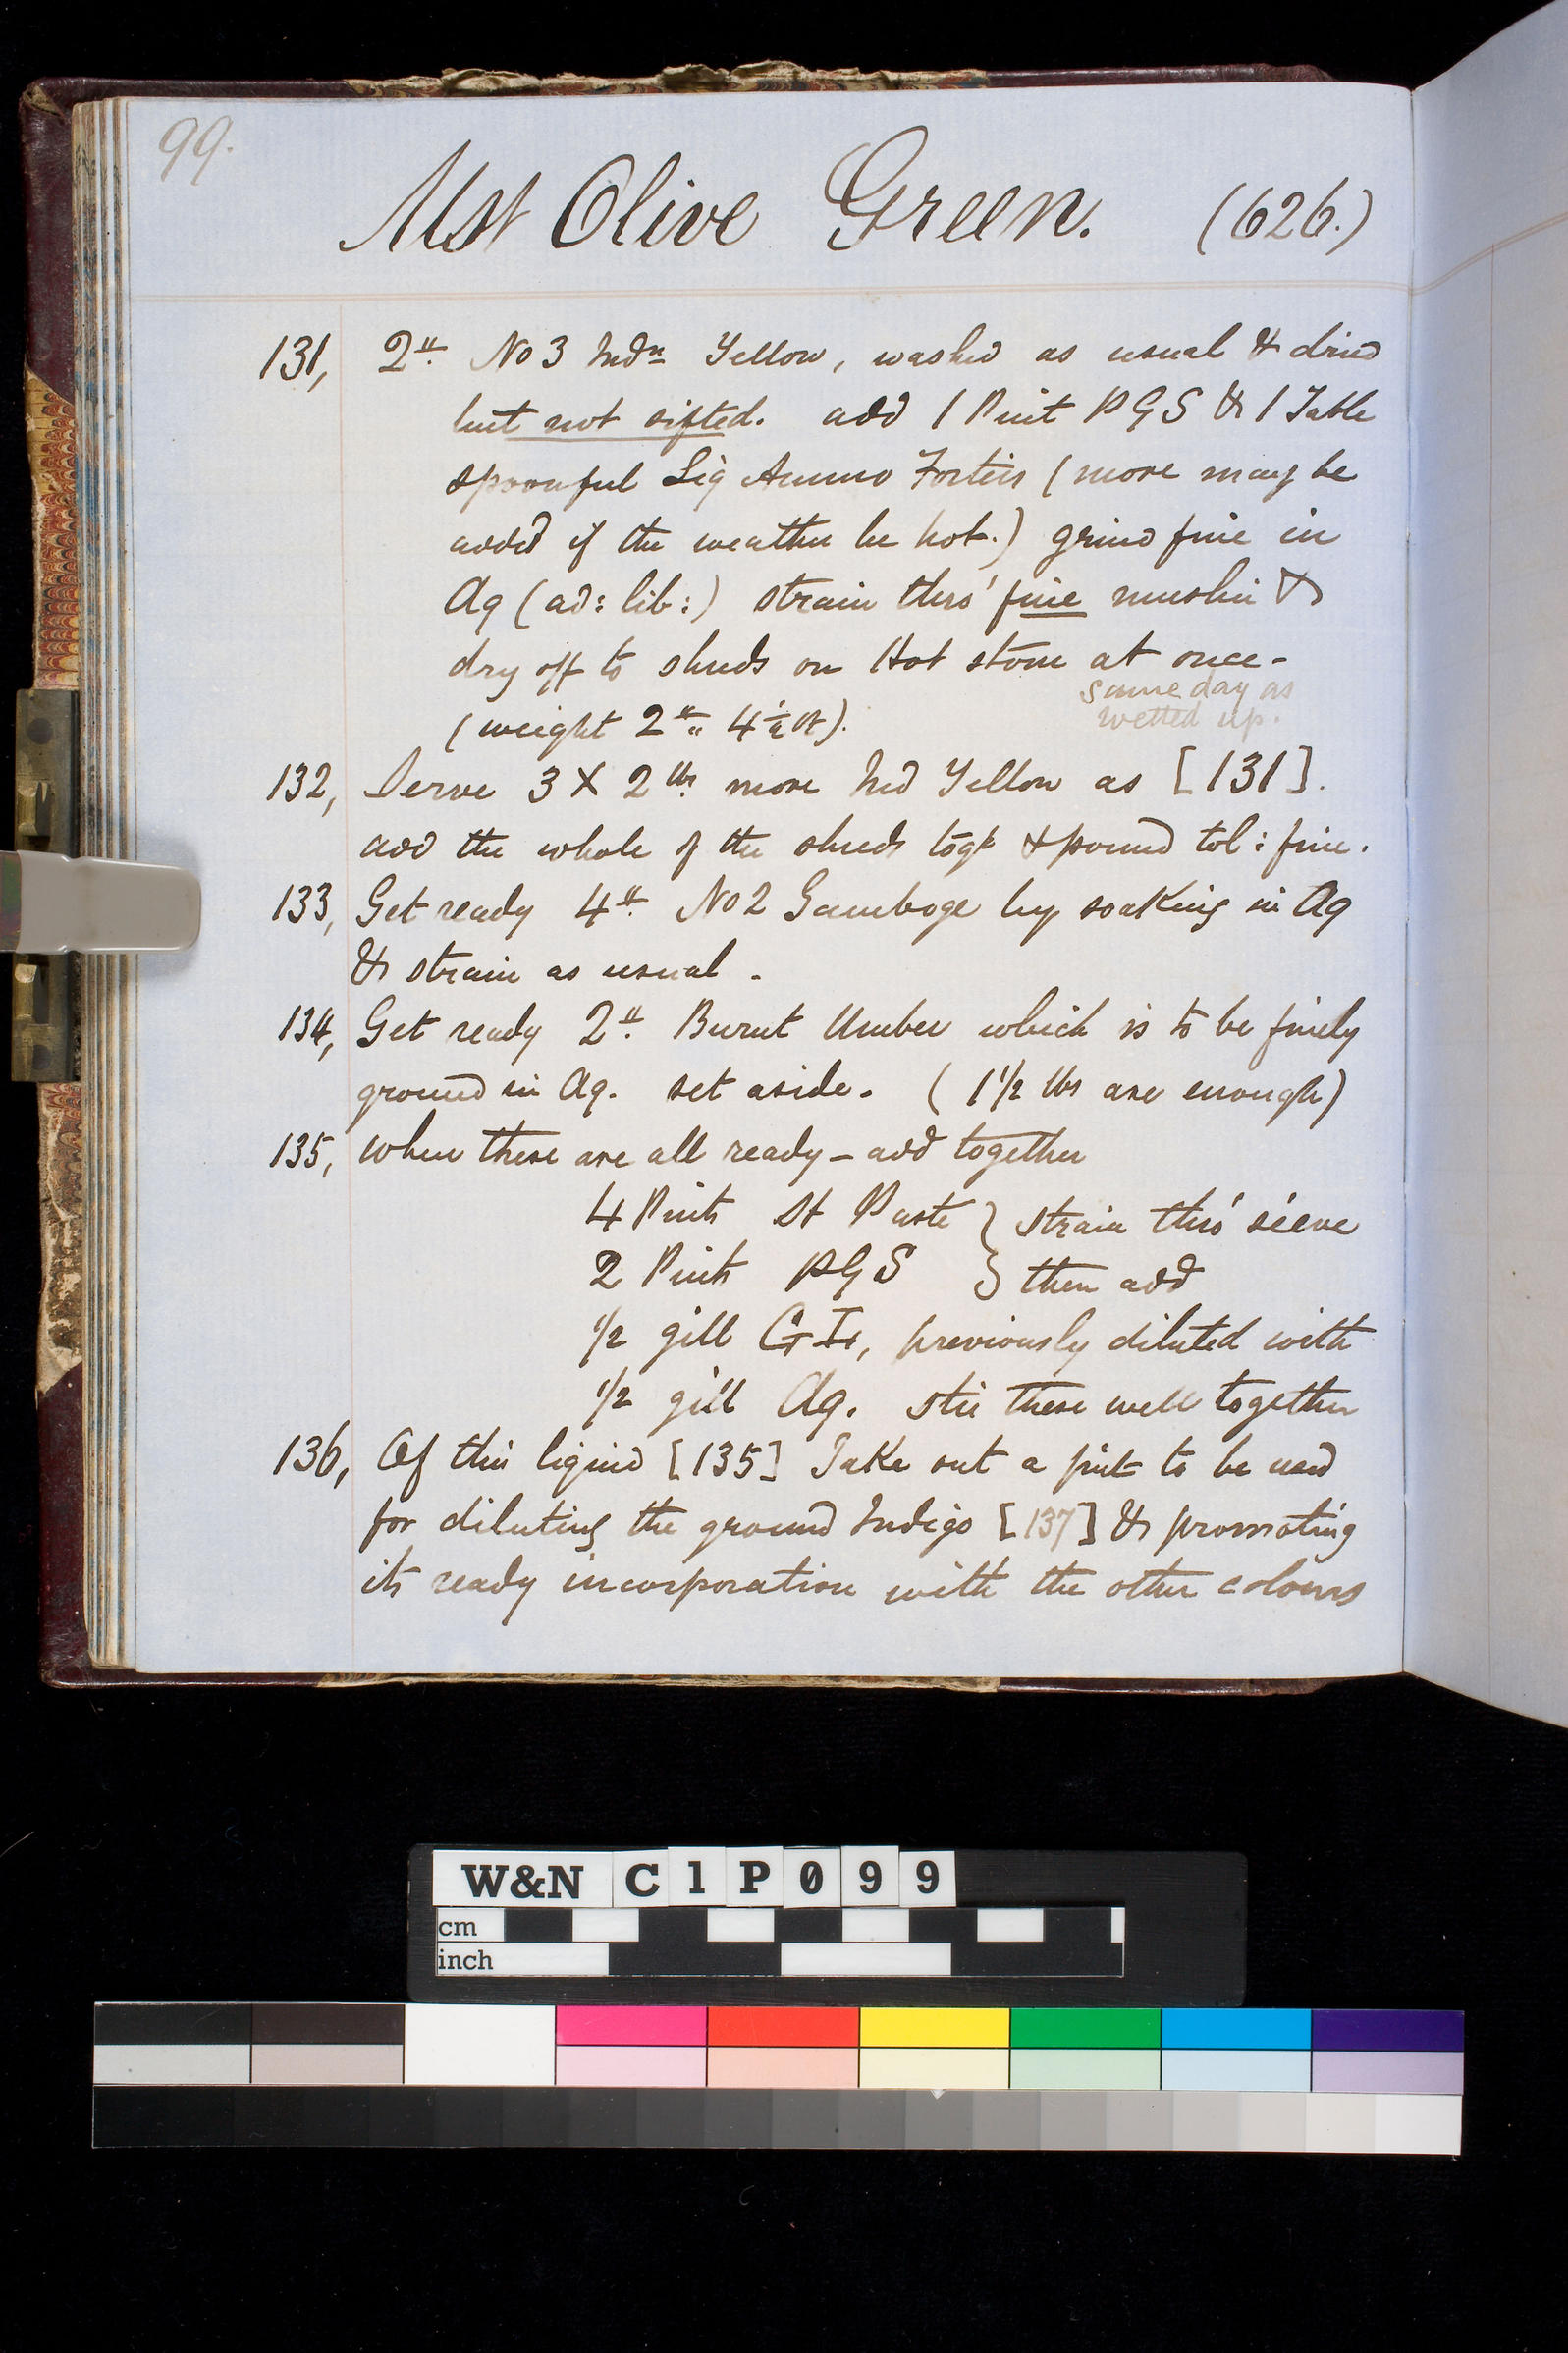 99.
Mst Olive Green. (626.)
131, 2 lb. No 3 Indn Yellow, washed as usual & dried
but not sifted. add 1 Pint PGS & 1 Table
spoonful Liq Ammo Fortis (more may be
added if the weather be hot.) grind fine in
Aq (ad: lib:) strain thro' fine muslin &
dry off to shreds on Hot stone at once-
same day as
wetted up.
(weight 2 lb. 4½ oz).
132, Serve 3 X 2 lbs. more Ind Yellow as [131].
add the whole of the shreds togr & pound tol: fine.
133, Get ready 4 lb. No 2 Gamboge by soaking in Aq
& strain as usual.
134, Get ready 2 lb. Burnt Umber which is to be finely
ground in Aq. set aside. (1 1/2 lbs are enough)
135, When these are all ready - add together
4 Pints St Paste } strain thro' sieve
2 Pints PGS } then add
1/2 gill GI, previously diluted with
1/2 gill Aq. stir these well together
136, Of this liquid [135] Take out a pint to be used
for diluting the ground Indigo [137] & promoting
its ready incorporation with the other colours
W&N C1P099
cm
inch